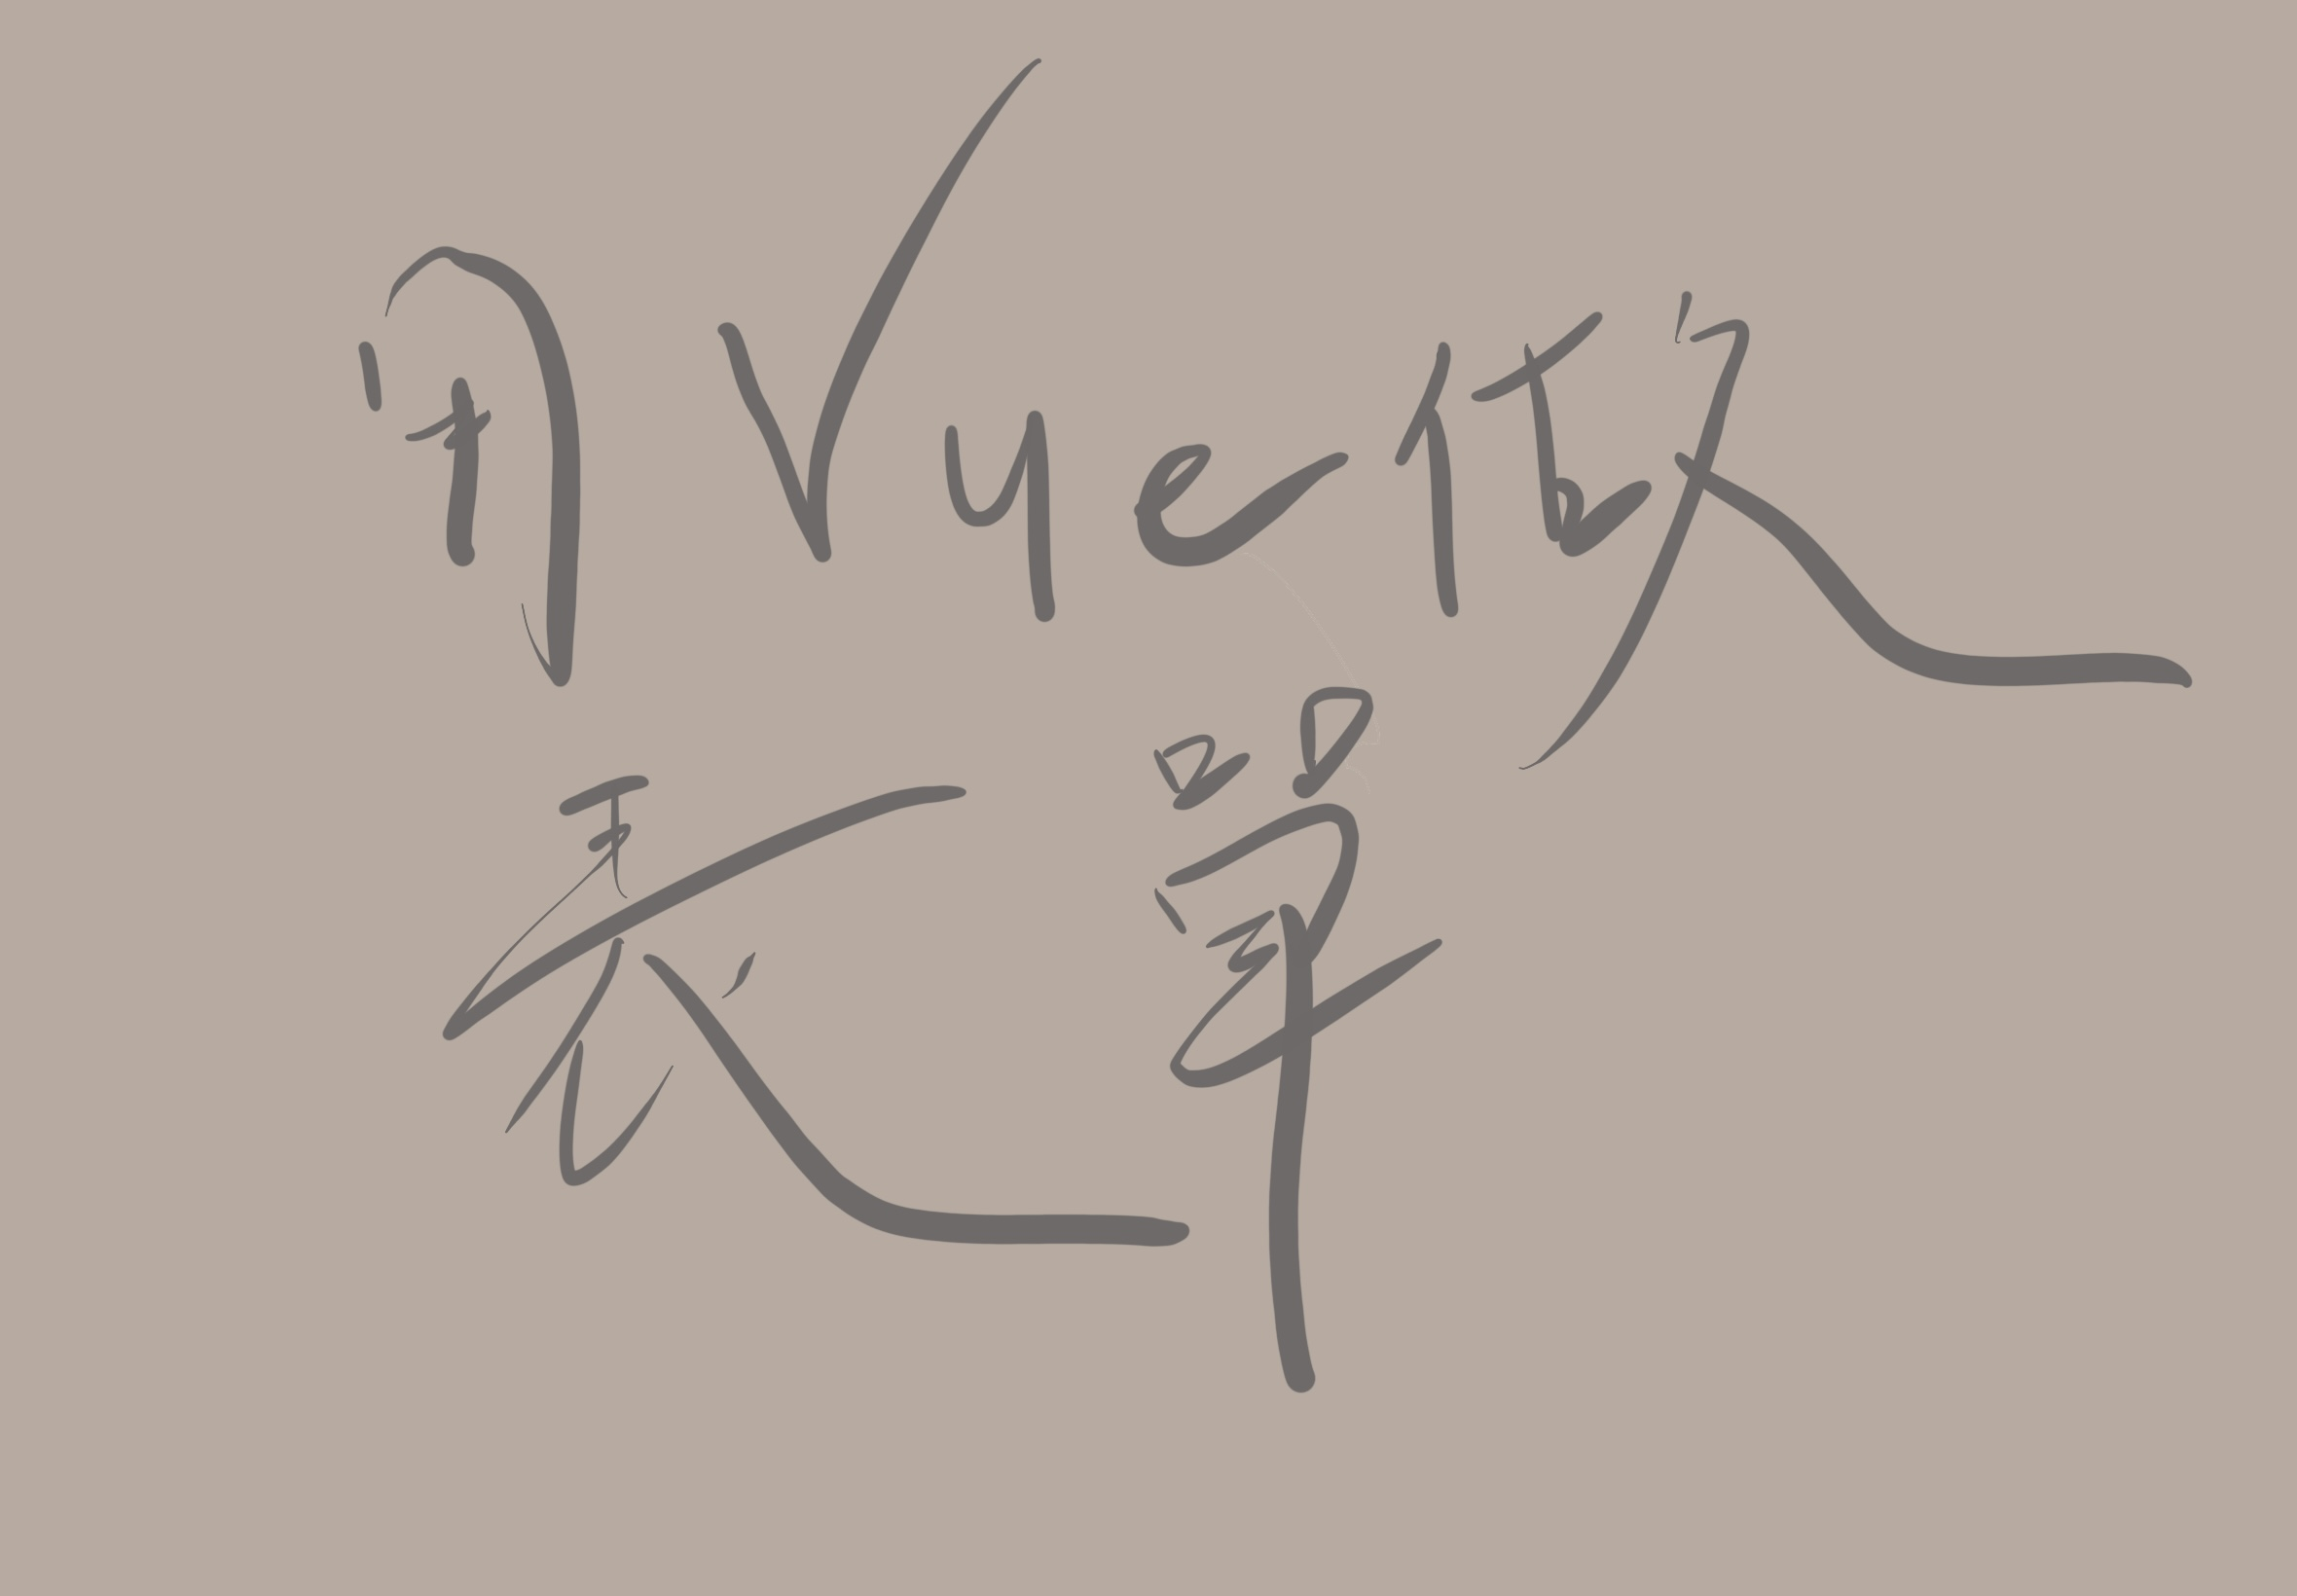 用Vue做
表單